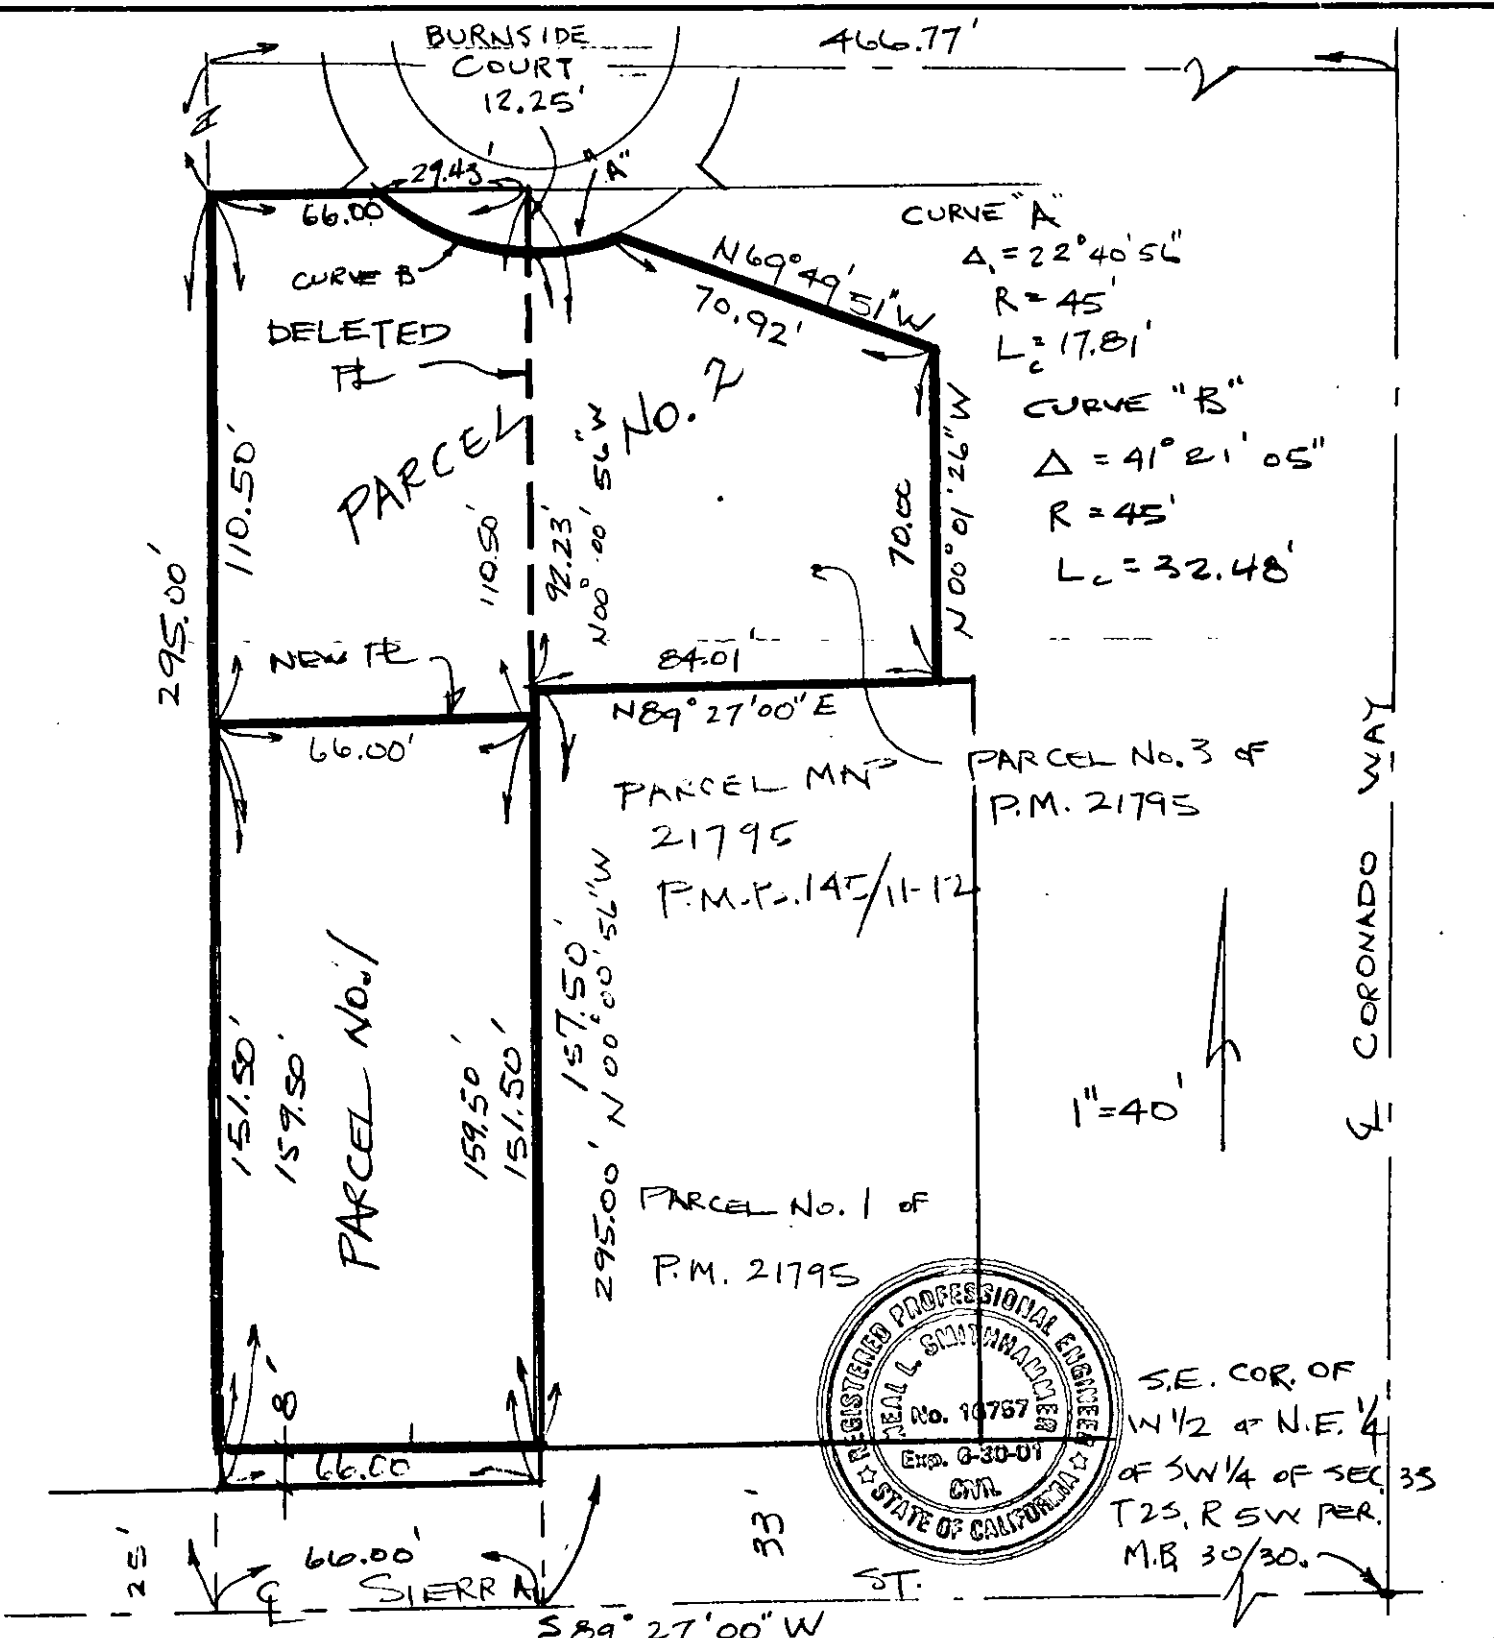 BURNSIDE
COURT
12.25'
466.77'
29.43'
"A"
66.00
CURVE B
DELETED
PL
N69°49'51"W
70.92'
CURVE "A"
Δ = 22°40'56"
R = 45'
Lc = 17.81'
CURVE "B"
Δ = 41°21'05"
R = 45'
Lc = 32.48'
PARCEL No. 2
110.50'
295.00'
110.50'
92.23'
N00°00'56"W
70.00
N00°01'26"W
NEW PL
84.01'
N89°27'00"E
66.00'
PARCEL MAP
21795
P.M.B. 145/11-12
PARCEL No. 3 OF
P.M. 21795
PARCEL No. 1
151.50'
159.50'
159.50'
151.50'
157.50'
295.00' N00°00'56"W
CL CORONADO WAY
1"=40'
PARCEL No. 1 OF
P.M. 21795
REGISTERED PROFESSIONAL ENGINEER
NEAL L. SMITHHAMMER
No. 16767
Exp. 6-30-01
CIVIL
STATE OF CALIFORNIA
S.E. COR. OF
W 1/2 OF N.E. 1/4
OF SW 1/4 OF SEC 35
T2S, R5W PER.
M.B. 30/30.
8'
66.00
25'
66.00'
33'
CL SIERRA ST.
S89°27'00"W